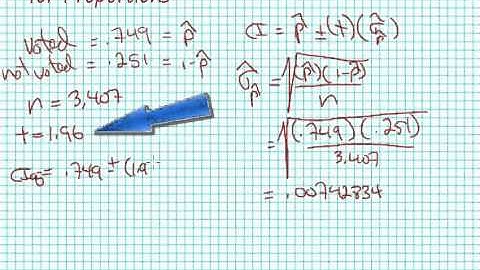 for Proportions
voted = .749 = p̂
not voted = .251 = 1-p̂
n = 3,407
t = 1.96
CI95 = .749 ± (1.9
CI = p̂ ± (t)(σ̂p̂)
σ̂p̂ = √((p̂)(1-p̂) / n)
= √((.749)(.251) / 3,407)
= .00742834